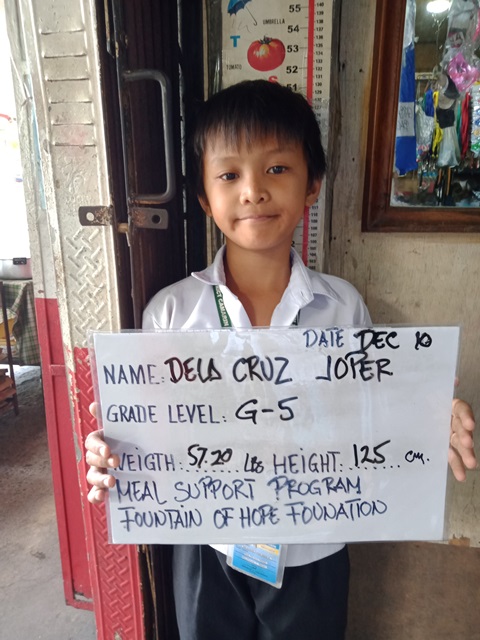 55
UMBRELLA
54
T
TOMATO
53
52
51
DATE DEC 10
NAME: DELA CRUZ JOPER
GRADE LEVEL: G-5
WEIGTH: 57.20 LBS HEIGHT: 125 CM.
MEAL SUPPORT PROGRAM
FOUNTAIN OF HOPE FOUNATION